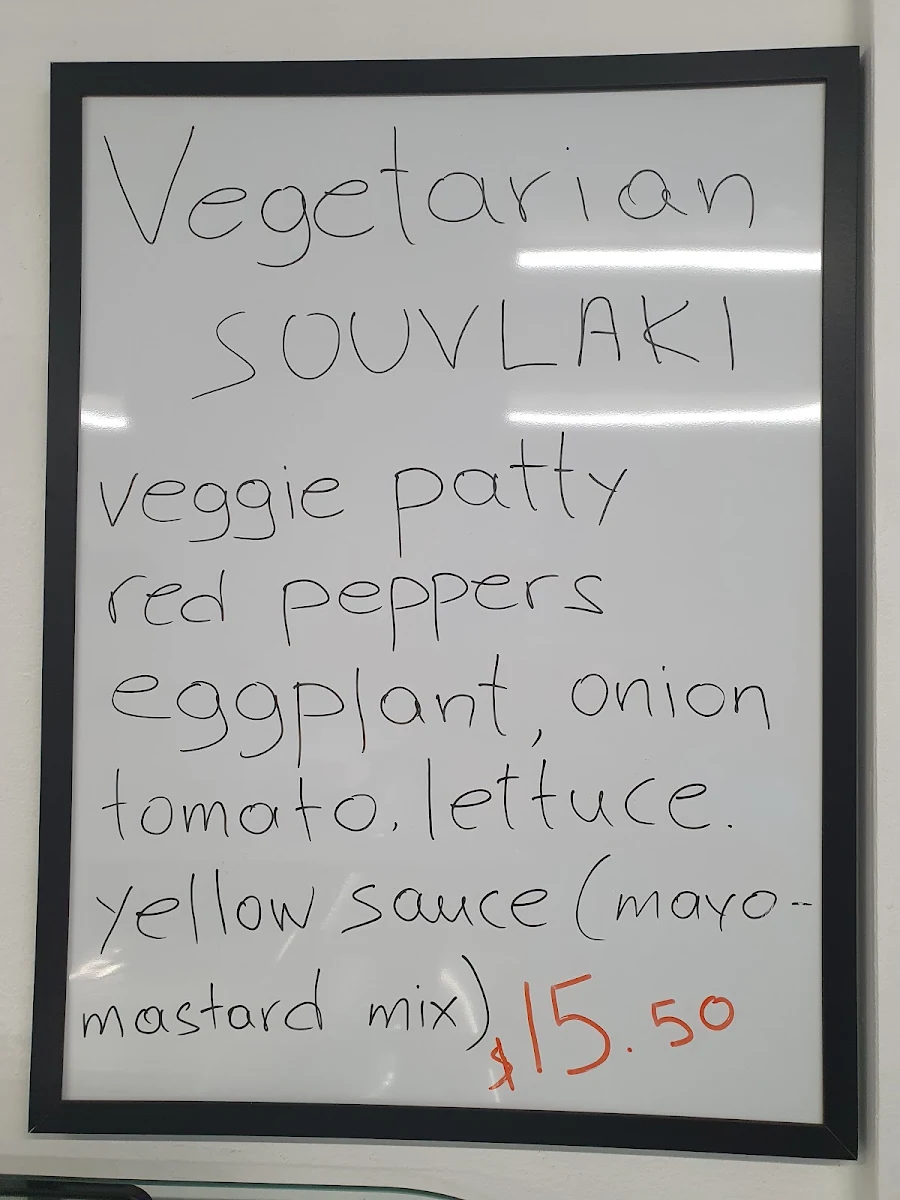 Vegetarian
SOUVLAKI
veggie patty
red peppers
eggplant, onion
tomato, lettuce.
yellow sauce (mayo-
mastard mix) $15.50